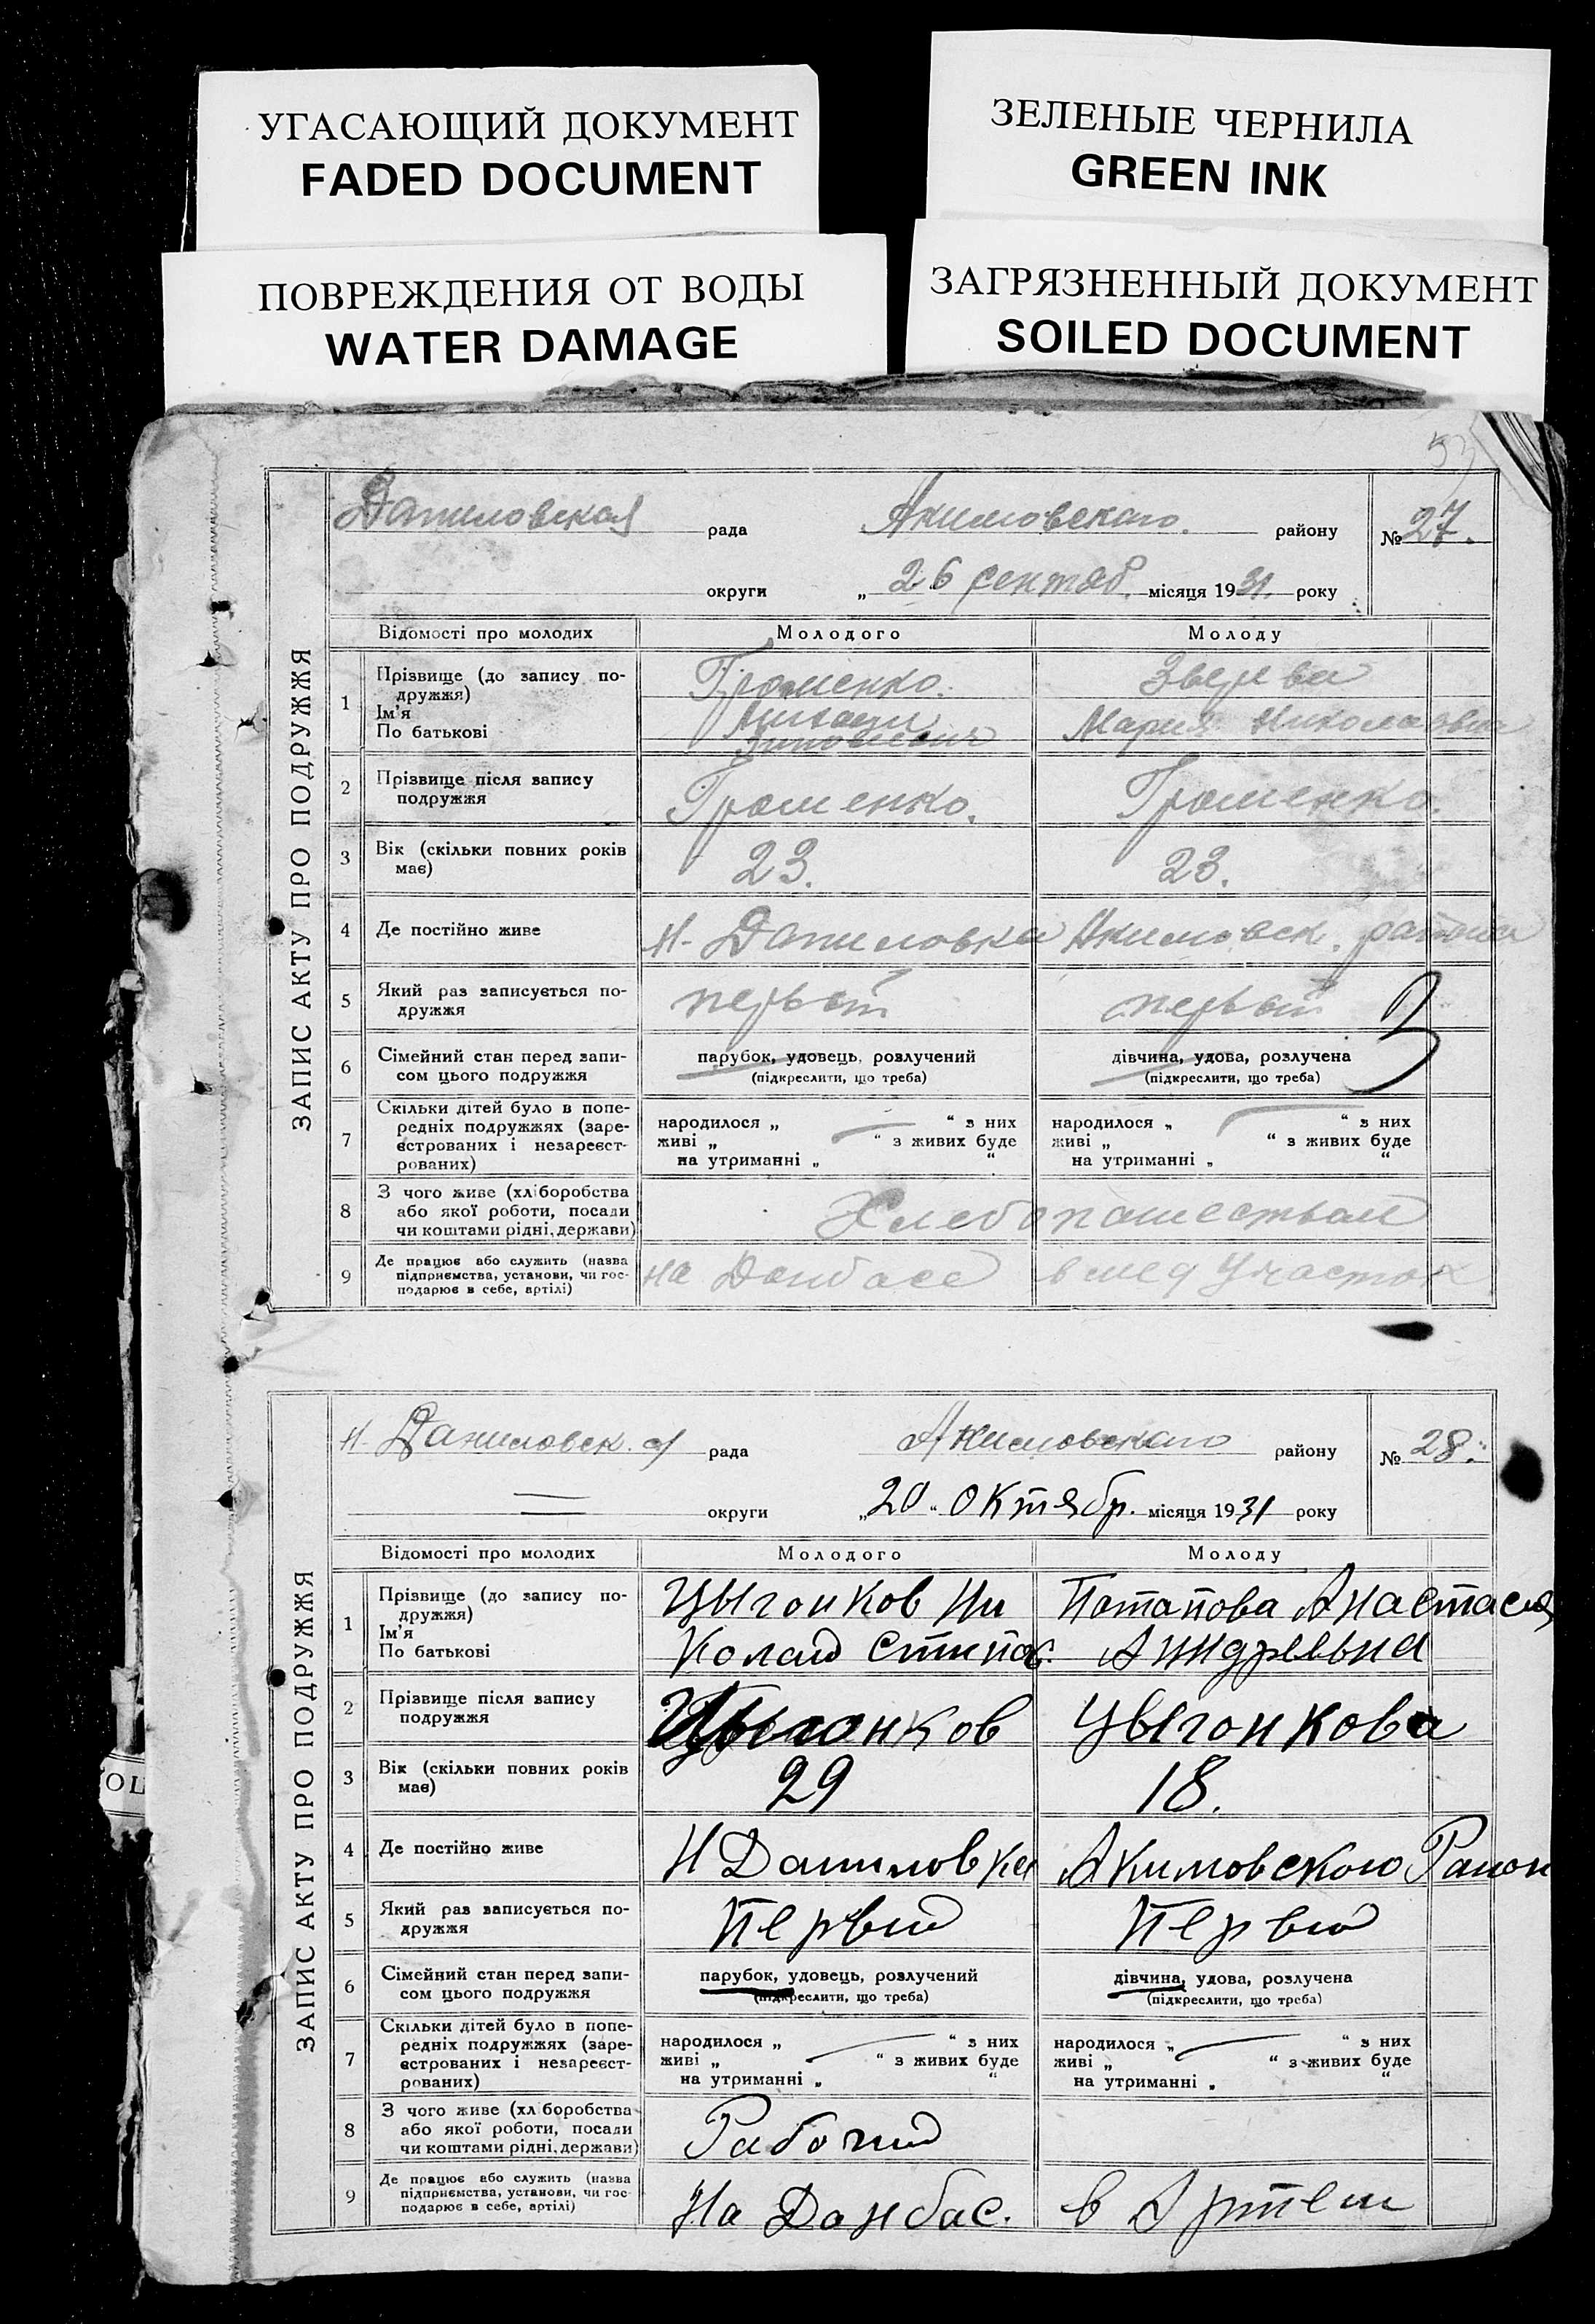 УГАСАЮЩИЙ ДОКУМЕНТ
FADED DOCUMENT
ЗЕЛЕНЫЕ ЧЕРНИЛА
GREEN INK
ПОВРЕЖДЕНИЯ ОТ ВОДЫ
WATER DAMAGE
ЗАГРЯЗНЕННЫЙ ДОКУМЕНТ
SOILED DOCUMENT
53
ЗАПИС АКТУ ПРО ПОДРУЖЖЯ
Даниловская рада Акимовского району № 27.
округи „ 26 сентяб. місяця 1931. року
Відомості про молодих Молодого Молоду
1 Прізвище (до запису по- Громенко. Зверева
дружжя)
Ім'я Мария Николаевна
По батькові
2 Прізвище після запису Громенко. Громенко.
подружжя
3 Вік (скільки повних років 23. 23.
має)
4 Де постійно живе Н-Даниловка Акимовск. района
5 Який раз записується по- первый первый
дружжя
З
6 Сімейний стан перед запи- парубок, удовець, розлучений дівчина, удова, розлучена
сом цього подружжя (підкреслити, що треба) (підкреслити, що треба)
7 Скільки дітей було в попе- народилося „ “ з них народилося „ “ з них
редніх подружжях (заре- живі „ “ з живих буде живі „ “ з живих буде
єстрованих і незареєст- на утриманні „ “ на утриманні „ “
рованих)
8 З чого живе (хліборобства Хлебопашеством
або якої роботи, посади
чи коштами рідні, держави)
9 Де працює або служить (назва на Донбасе в мед участок
підприємства, установи, чи гос-
подарює в себе, артілі)
ЗАПИС АКТУ ПРО ПОДРУЖЖЯ
Н-Даниловск.ая рада Акимовского району № 28.
округи „20“ Октябр. місяця 1931 року
Відомості про молодих Молодого Молоду
1 Прізвище (до запису по- Цыгонков Ни Потапова Анастасия
дружжя)
Ім'я Колай Степов. Андревьна
По батькові
2 Прізвище після запису Цыгонков Цыгонкова
подружжя
3 Вік (скільки повних років 29 18.
має)
4 Де постійно живе Н Даниловка Акимовского Район
5 Який раз записується по- Первый Первый
дружжя
6 Сімейний стан перед запи- парубок, удовець, розлучений дівчина, удова, розлучена
сом цього подружжя (підкреслити, що треба) (підкреслити, що треба)
7 Скільки дітей було в попе- народилося „ “ з них народилося „ “ з них
редніх подружжях (заре- живі „ “ з живих буде живі „ “ з живих буде
єстрованих і незареєст- на утриманні „ “ на утриманні „ “
рованих)
8 З чого живе (хліборобства Рабочий
або якої роботи, посади
чи коштами рідні, держави)
9 Де працює або служить (назва На Донбас. в Артели
підприємства, установи, чи гос-
подарює в себе, артілі)